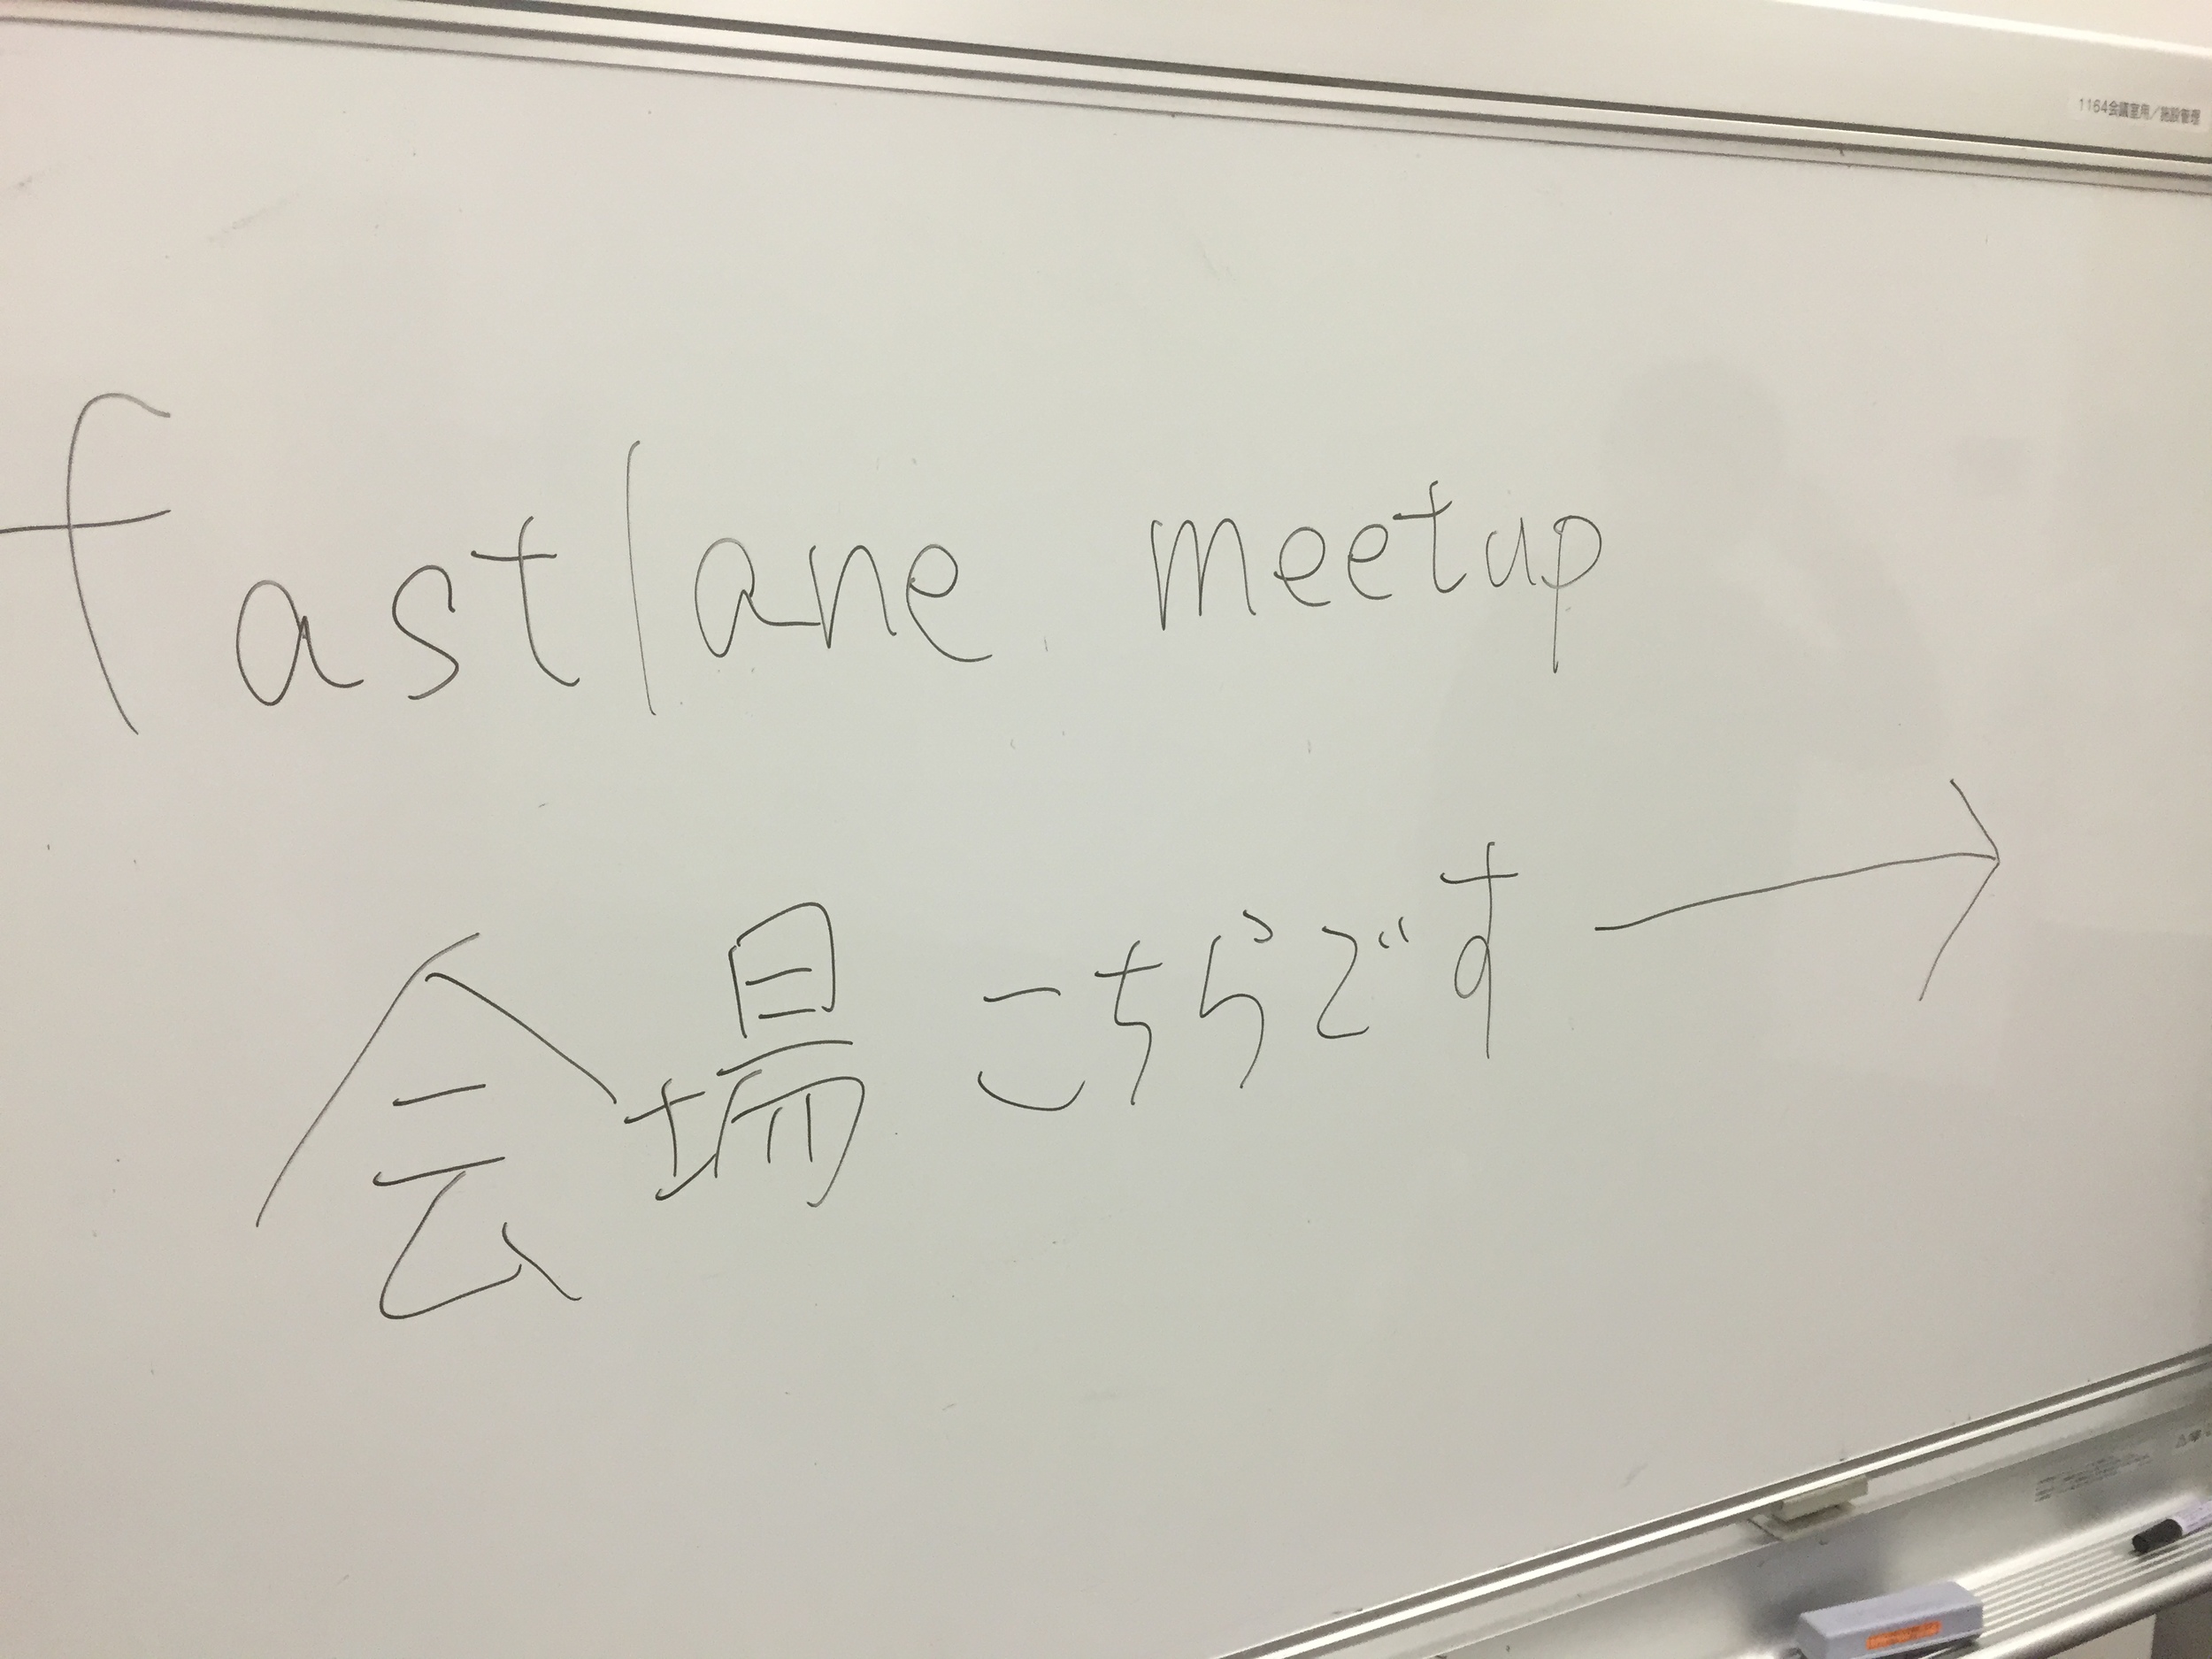 1164会議室用／施設管理
fastlane meetup
会場こちらです →